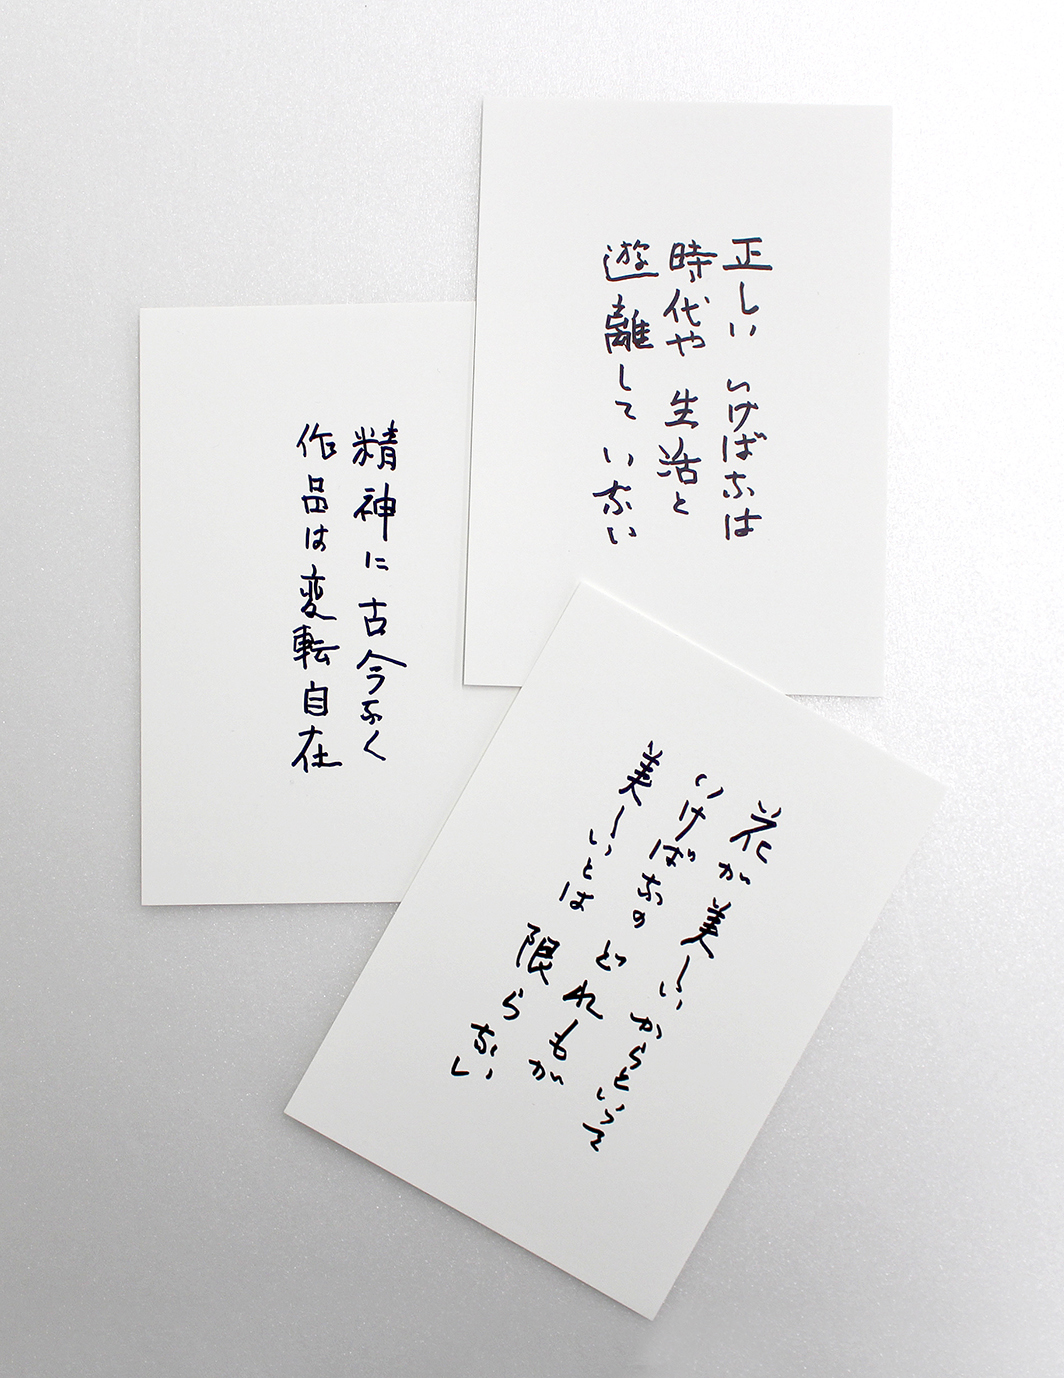 正しい いけばなは
時代や 生活と
遊離して いない
精神に 古今なく
作品は変転自在
花が美しいからといって
いけばなの どれもが
美しいとは 限らない